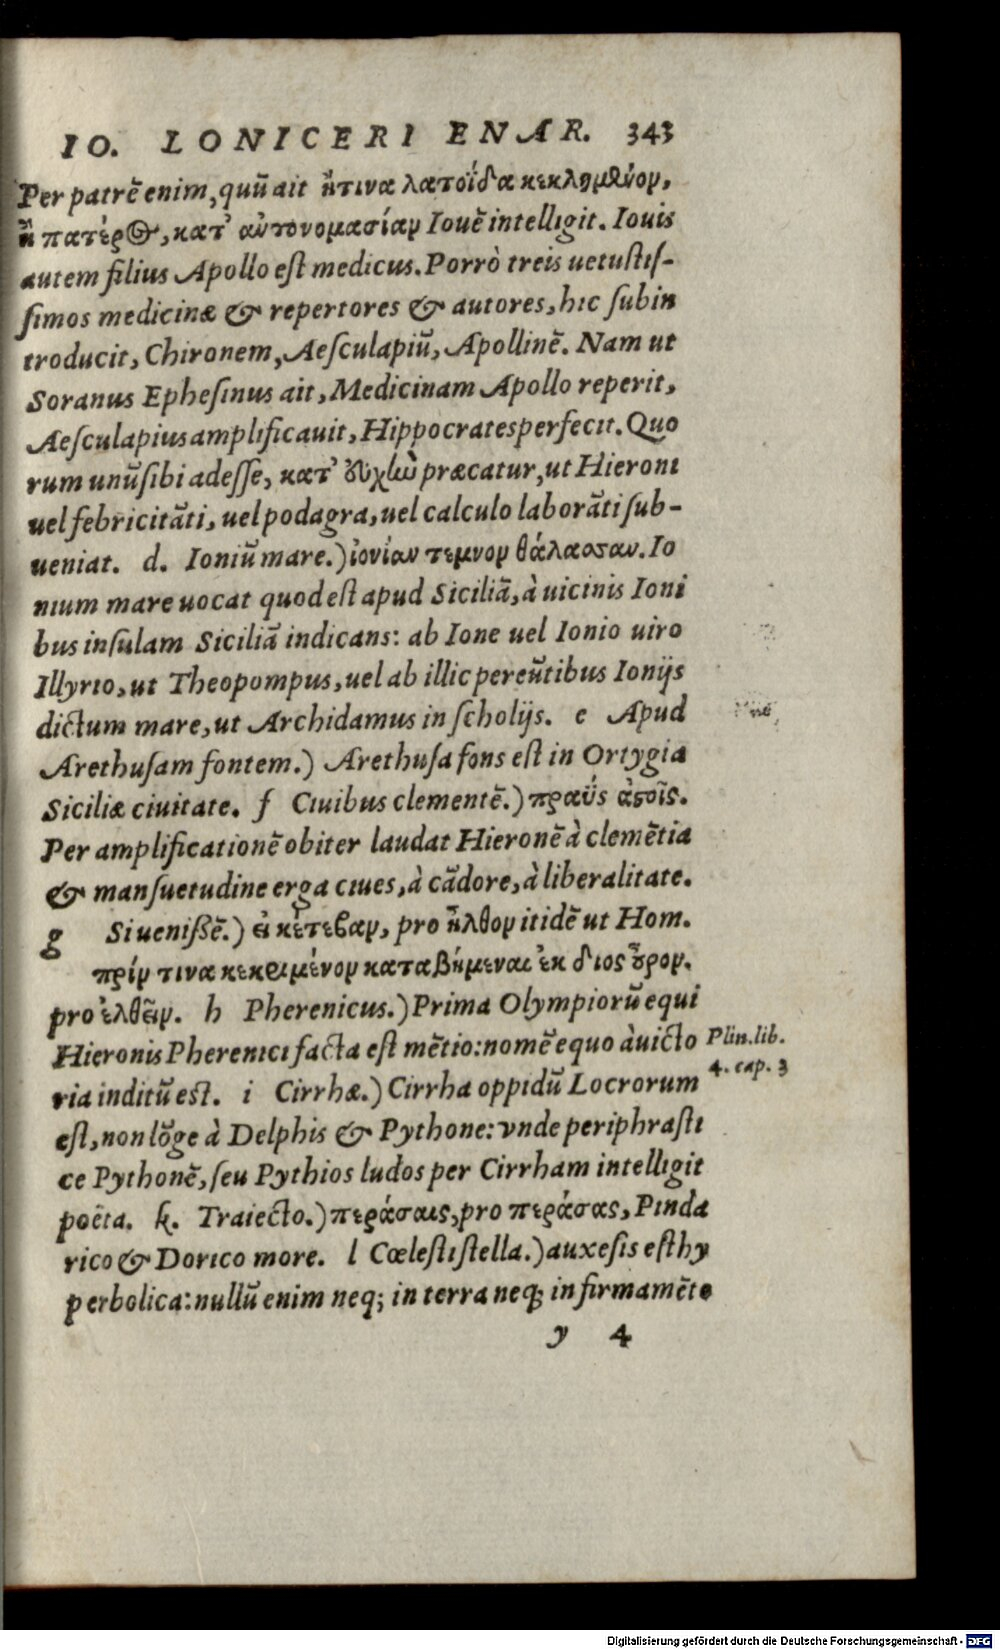 IO. LONICERI ENAR. 343
Per patrē enim, quū ait ἤτινα λατοΐδα κεκλημένον,
ἢ πατέρος, κατ' αὐτονομασίαν Iouē intelligit. Iouis
autem filius Apollo est medicus. Porrò treis uetustis-
simos medicinæ & repertores & autores, hic subin
troducit, Chironem, Aesculapiū, Apollinē. Nam ut
Soranus Ephesinus ait, Medicinam Apollo reperit,
Aesculapius amplificauit, Hippocrates perfecit. Quo
rum unū sibi adesse, κατ' εὐχὼ præcatur, ut Hieroni
uel febricitāti, uel podagra, uel calculo laborāti sub-
ueniat. d. Ioniū mare.) ἰονίαν τεμνον θάλασσαν. Io
nium mare uocat quod est apud Siciliā, à uicinis Ioni
bus insulam Siciliā indicans: ab Ione uel Ionio uiro
Illyrio, ut Theopompus, uel ab illic pereūtibus Ionijs
dictum mare, ut Archidamus in scholijs. e Apud
Arethusam fontem.) Arethusa fons est in Ortygia
Siciliæ ciuitate. f Ciuibus clementē.) πραῢς ἀστοῖς.
Per amplificationē obiter laudat Hieronē à clemētia
& mansuetudine erga ciues, à cādore, à liberalitate.
g Si uenissē.) εἰ κέτεβαν, pro ἦλθον itidē ut Hom.
πρίν τινα κεκριμένον καταβήμεναι ἐκ διος ὖρον.
pro ἐλθεῖν. h Pherenicus.) Prima Olympiorū equi
Hieronis Pherenici facta est mētio: nomē equo à uicto
Plin. lib.
4. cap. 3
ria inditū est. i Cirrhæ.) Cirrha oppidū Locrorum
est, non lōge à Delphis & Pythone: vnde periphrasti
ce Pythonē, seu Pythios ludos per Cirrham intelligit
poëta. k. Traiecto.) περάσαις, pro περάσας, Pinda
rico & Dorico more. l Cœlesti stella.) auxesis est hy
perbolica: nullū enim neq; in terra neq; in firmamēto
y 4
Digitalisierung gefördert durch die Deutsche Forschungsgemeinschaft - DFG